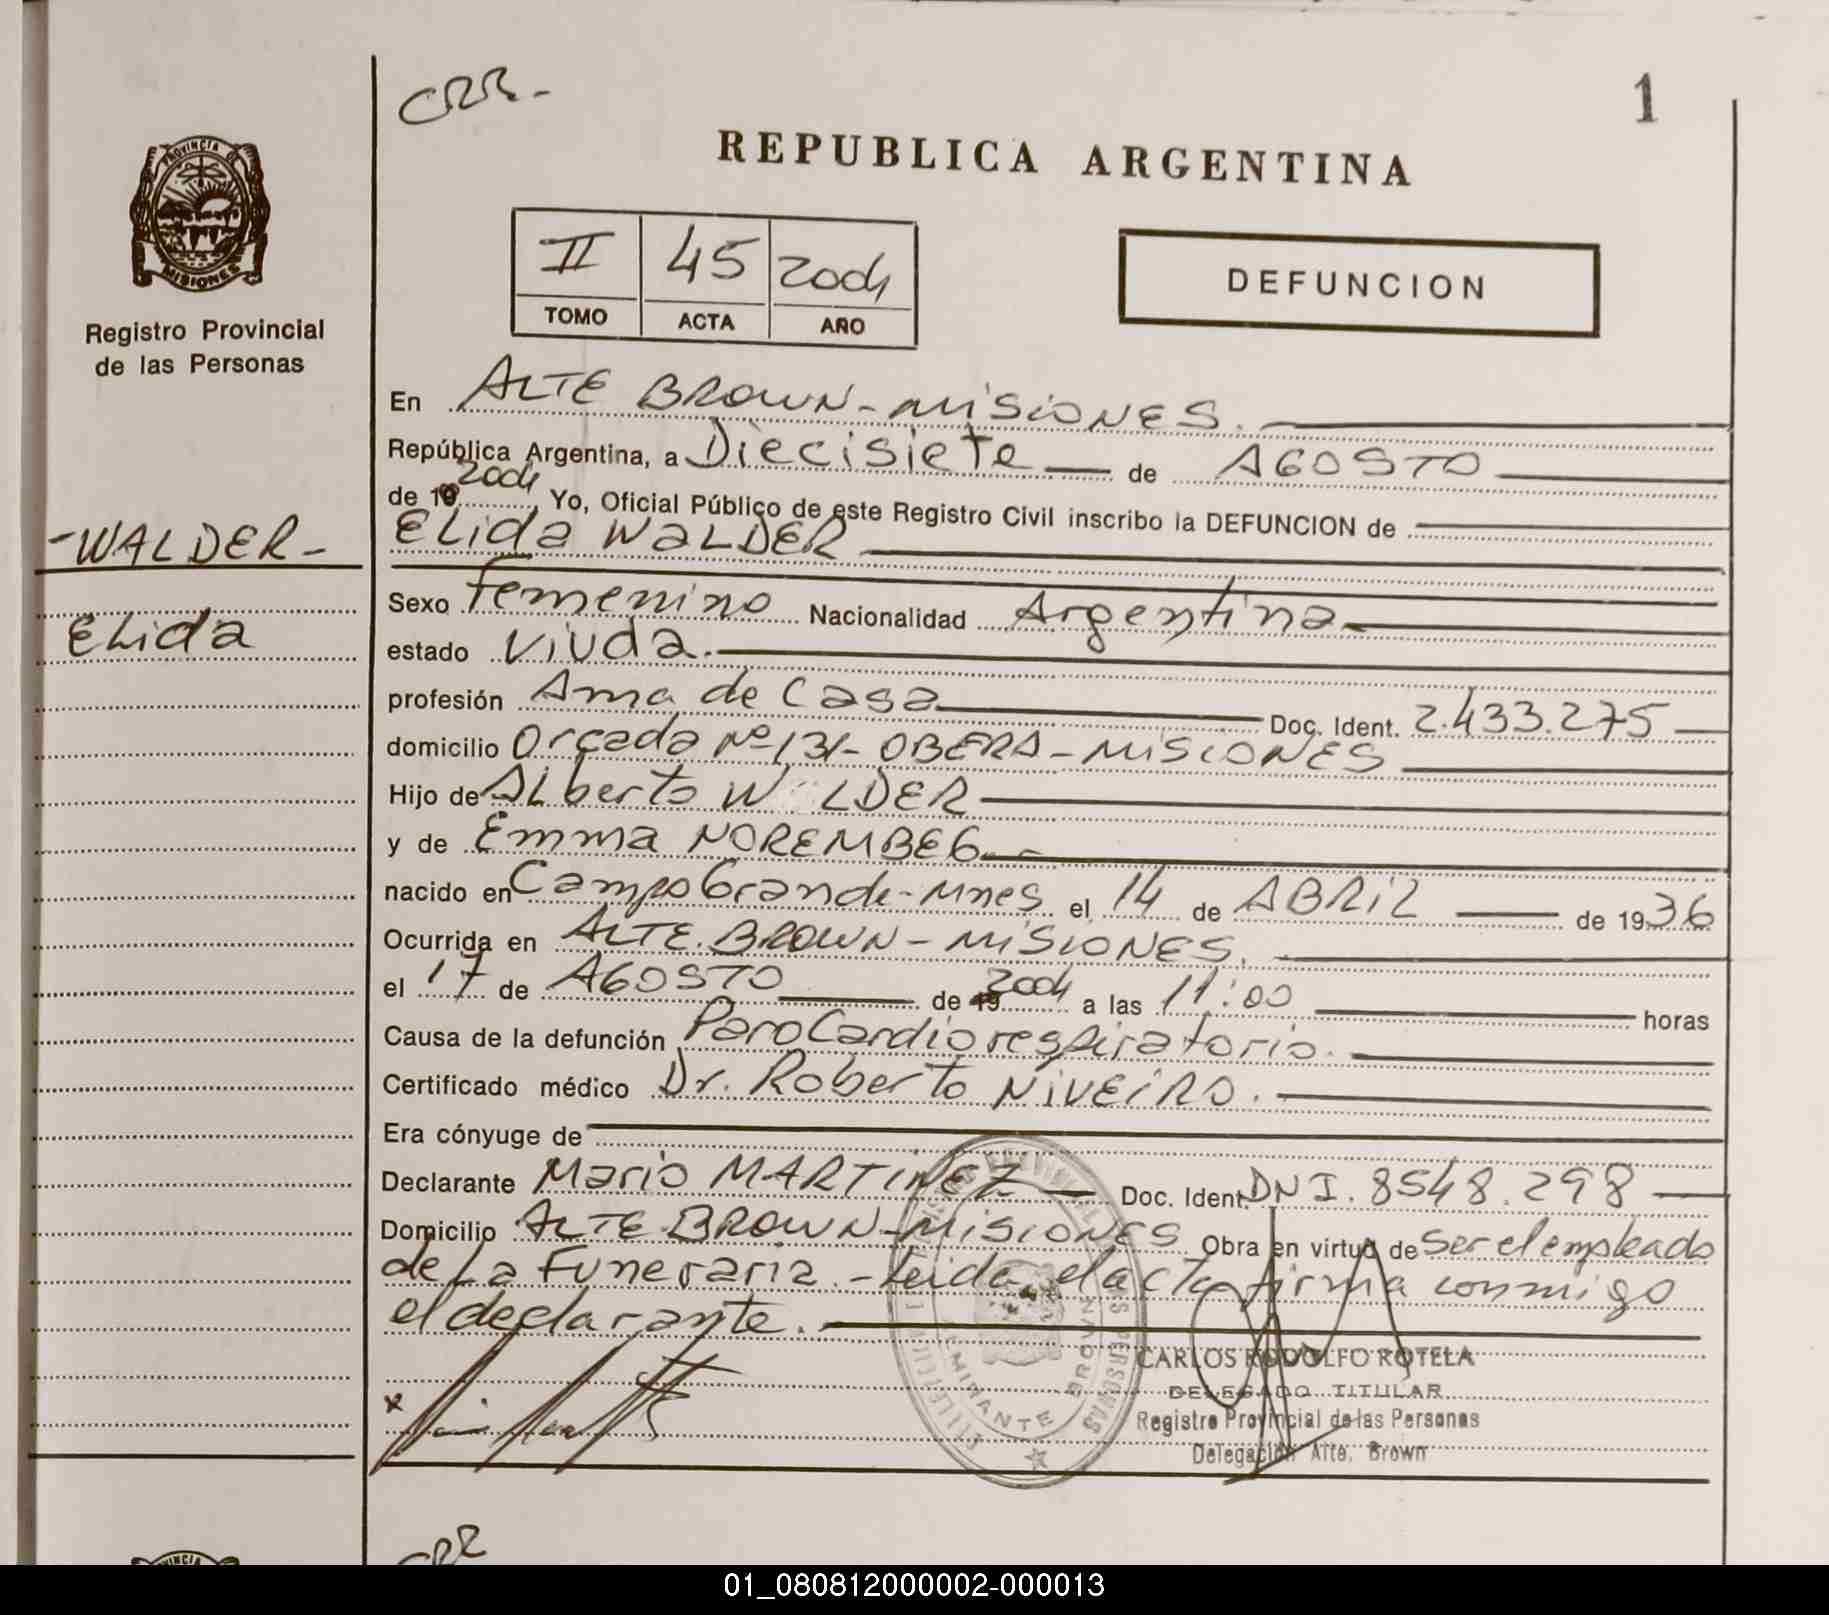 CRR-
1
REPUBLICA ARGENTINA
PROVINCIA D
MISIONES
Registro Provincial
de las Personas
II 45 2004
TOMO ACTA AÑO
DEFUNCION
En ALTE BROWN-MISIONES.
República Argentina, a Diecisiete de AGOSTO
de 19 2004 Yo, Oficial Público de este Registro Civil inscribo la DEFUNCION de
-WALDER-
Elida WALDER
Elida
Sexo Femenino Nacionalidad Argentina
estado Viuda.
profesión Ama de Casa Doc. Ident. 2.433.275
domicilio Orcada Nº 131-OBERA-MISIONES
Hijo de Alberto W LDER
y de Emma NOREMBEG
nacido en Campo Grande-Mnes el 14 de ABRIL de 1936
Ocurrida en ALTE. BROWN-MISIONES.
el 17 de AGOSTO de 19 2004 a las 11:00 horas
Causa de la defunción Paro Cardiorespiratorio.
Certificado médico Dr. Roberto NIVEIRO.
Era cónyuge de
Declarante Mario MARTINEZ Doc. Ident. DNI. 8548.298
Domicilio ALTE. BROWN-MISIONES Obra en virtud de Ser el empleado
de La Funeraria.-Leida el acta firma conmigo
el declarante.
ALMIRANTE BROWN
PERSONAS
x
CARLOS RODOLFO ROTELA
DELEGADO TITULAR
Registro Provincial de las Personas
Delegación Alte. Brown
PROVINCIA
CRR
01_080812000002-000013